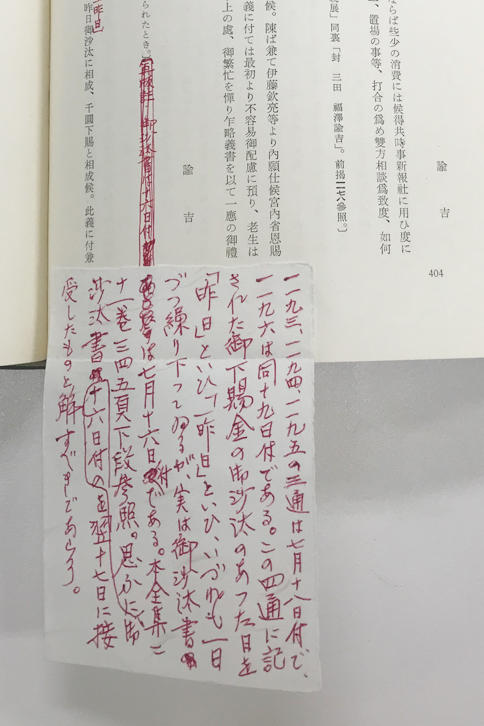 諭吉
ならば些少の消費には候得共時事新報社に用ひ度に
、置場の事等、打合の爲め雙方相談爲致度、如何
展」同裏「封 三田 福澤諭吉」。前揭一一七八參照。〕
404
候。陳ば兼て伊藤欽亮等より內願仕候宮內省恩賜
義に付ては最初より不容易御配慮に預り、老生は
上の處、御繁忙を憚り乍略義書を以て一應の御禮
諭吉
られたとき。
御沙汰書付十六日付
一昨日
昨日御沙汰に相成、千圓下賜と相成候。此義に付兼
一一九三、一一九四、一一九五の三通は七月十八日付で、
一一九六は同十九日付である。この四通に記
された御下賜金の御沙汰のあつた日を
「昨日」といひ「一昨日」といひ、いづれも一日
づつ繰り下つてゐるが、実は御沙汰書
は七月十六日付である。本全集二
十一巻三四五頁下段参照。思ふに御
沙汰書十六日付のを翌十七日に接
受したものと解すべきであらう。